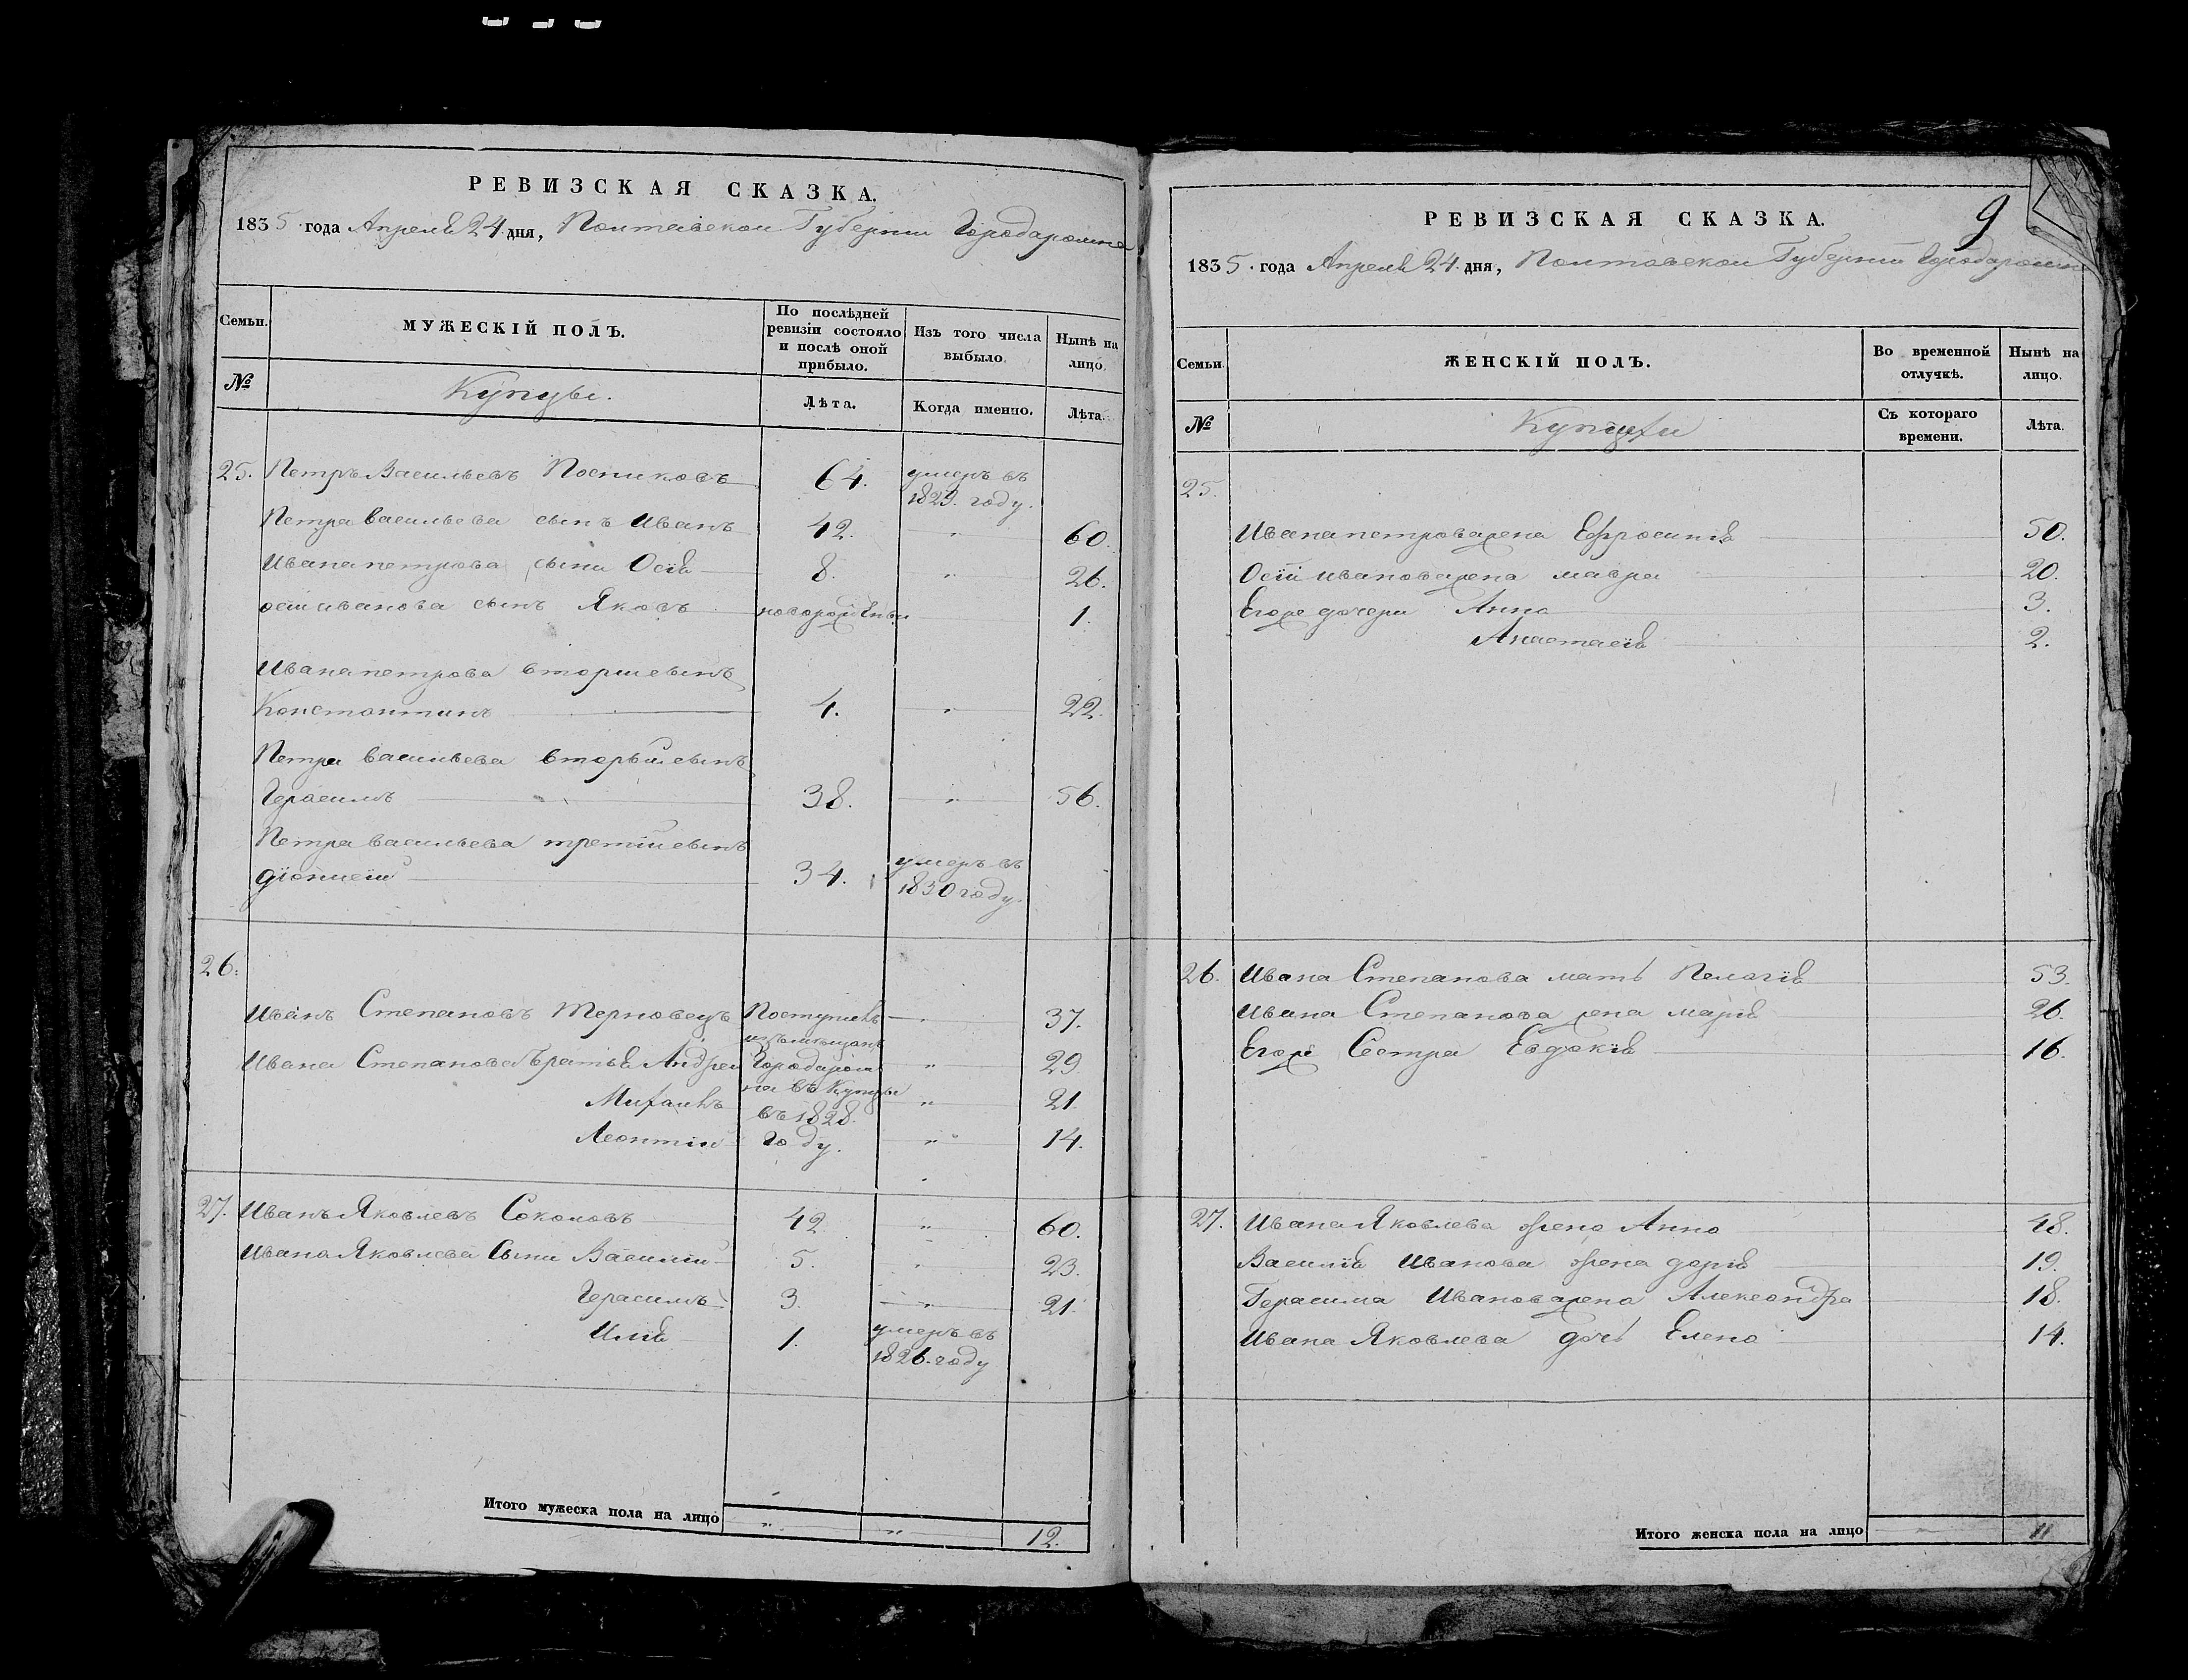 РЕВИЗСКАЯ СКАЗКА.
1835 года Апреля 24 дня, Полтавской Губернии Города Ромна
Семьи. МУЖЕСКІЙ ПОЛЪ. По послѣдней ревизіи состояло и послѣ оной прибыло. Изъ того числа выбыло. Нынѣ на лицо.
№ Купцы. Лѣта. Когда именно. Лѣта.
25. Петръ Васильевъ 64. умеръ въ
1829. году.
Петра Васильева сынъ Иванъ 42. " 60.
Ивана петрова сыни Осія 8. " 26.
осіи иванова сынъ Яковъ новорожденъ 1.
Ивана петрова вторый сынъ
Константинъ 4. " 22.
Петра васильева вторый сынъ
Герасимъ 38. " 56.
Петра васильева третій сынъ
Діонисій 34. умеръ въ
1830 году.
26.
Иванъ Степановъ Терновецъ Поступилъ " 37.
изъ мещанъ
Ивана Степанова братья Андрей Города Ром " 29.
на въ Купцы
Михаилъ въ 1828. " 21.
Леонтій году. " 14.
27. Иванъ Яковлевъ Соколовъ 42. " 60.
Ивана Яковлева Сыни Василій 5. " 23.
Герасимъ 3. " 21.
Илія 1. умеръ въ
1826. году
Итого мужеска пола на лицо " " 12.
9
РЕВИЗСКАЯ СКАЗКА.
1835. года Апреля 24. дня, Полтавской Губерніи Города Ромна
Семьи. ЖЕНСКІЙ ПОЛЪ. Во временной отлучкѣ. Нынѣ на лицо.
№ Съ котораго времени. Лѣта.
25.
Ивана петрова жена Ефросинія 50.
Осіи иванова жена мавра 20.
Егоже дочери Анна 3.
Анастасія 2.
26. Ивана Степанова мать Пелагія 53.
Ивана Степанова жена марія 26.
Егоже Сестра Евдокія 16.
27. Ивана Яковлева жена Анна 48.
Василія Иванова жена дарія 19.
Герасима Иванова жена Александра 18.
Ивана Яковлева дочь Елена 14.
Итого женска пола на лицо 11